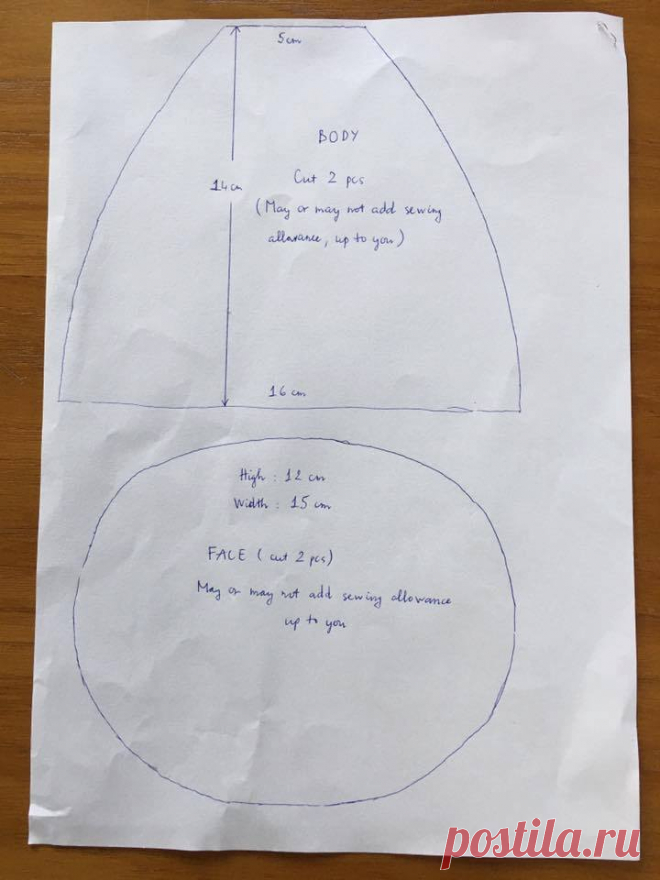 5cm
BODY
14cm
Cut 2 pcs
(May or may not add sewing
allowance, up to you)
16 cm
High : 12 cm
Width : 15 cm
FACE ( cut 2 pcs)
May or may not add sewing allowance
up to you
postila.ru